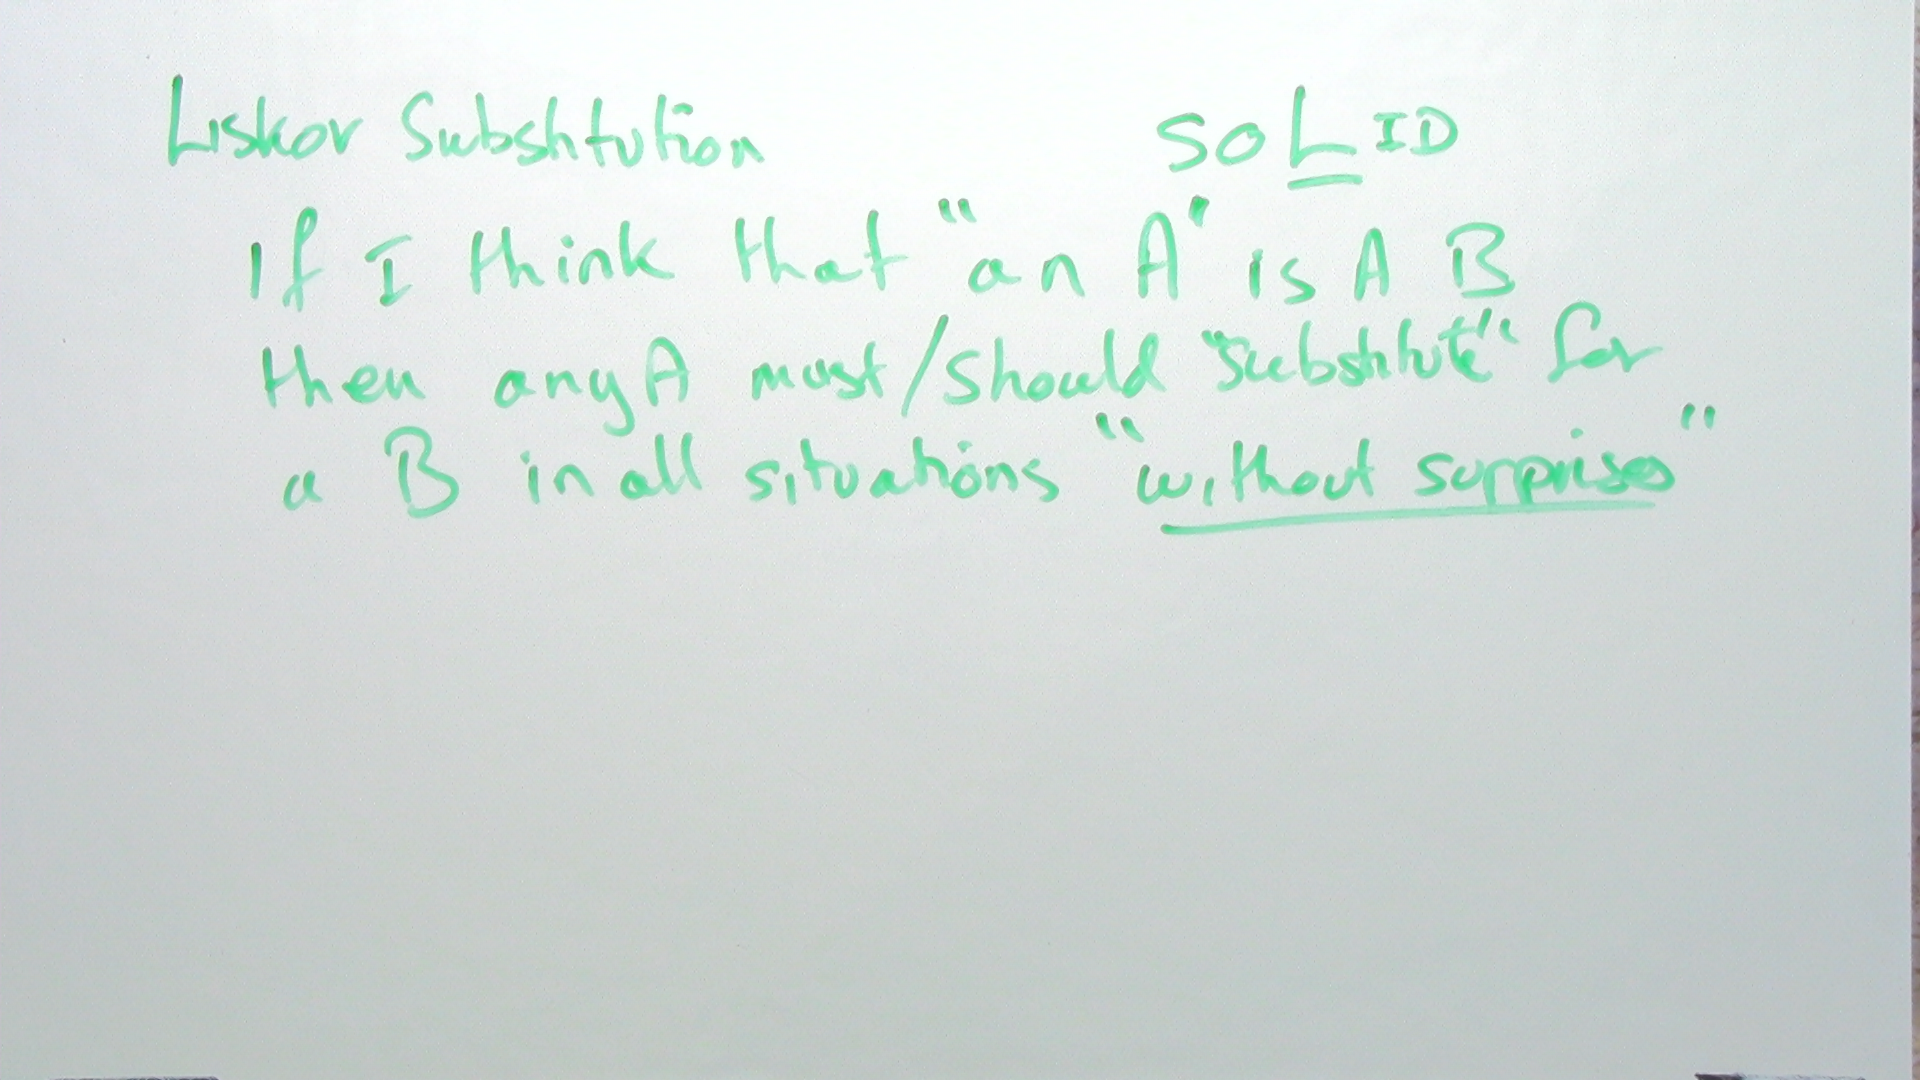 Liskov Substitution SOLID
If I think that "an A" is A B
then any A must/should "substitute" for
a B in all situations "without surprises"